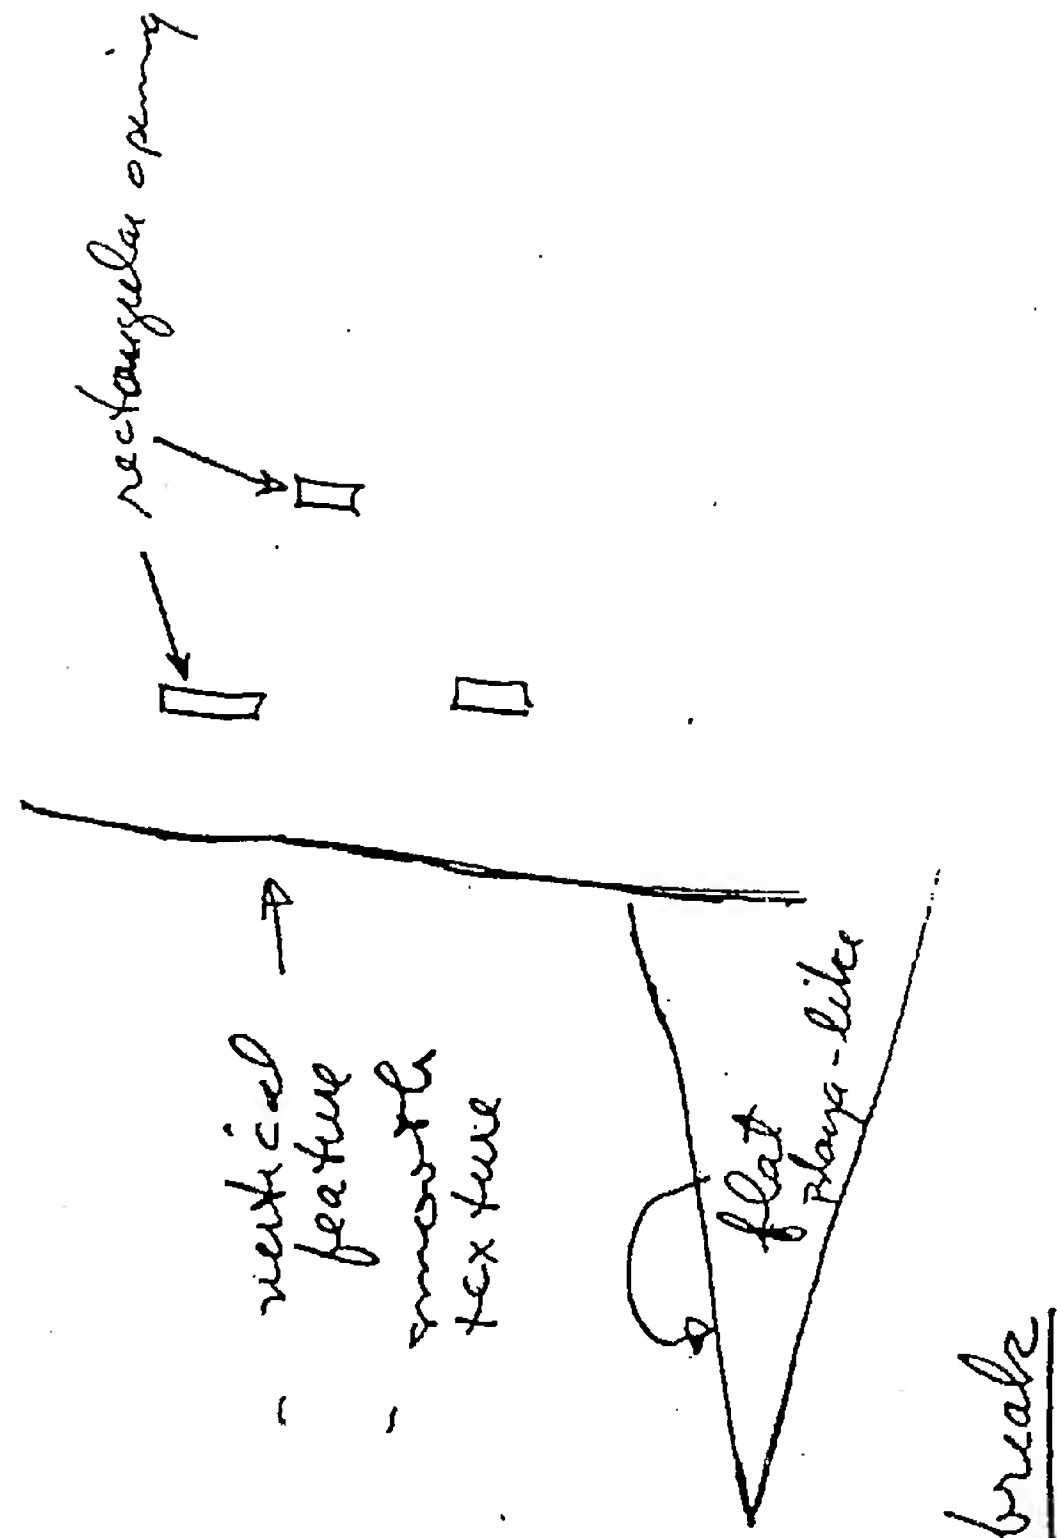 rectangular opening
- vertical
feature
- smooth
texture
flat
playa-like
break